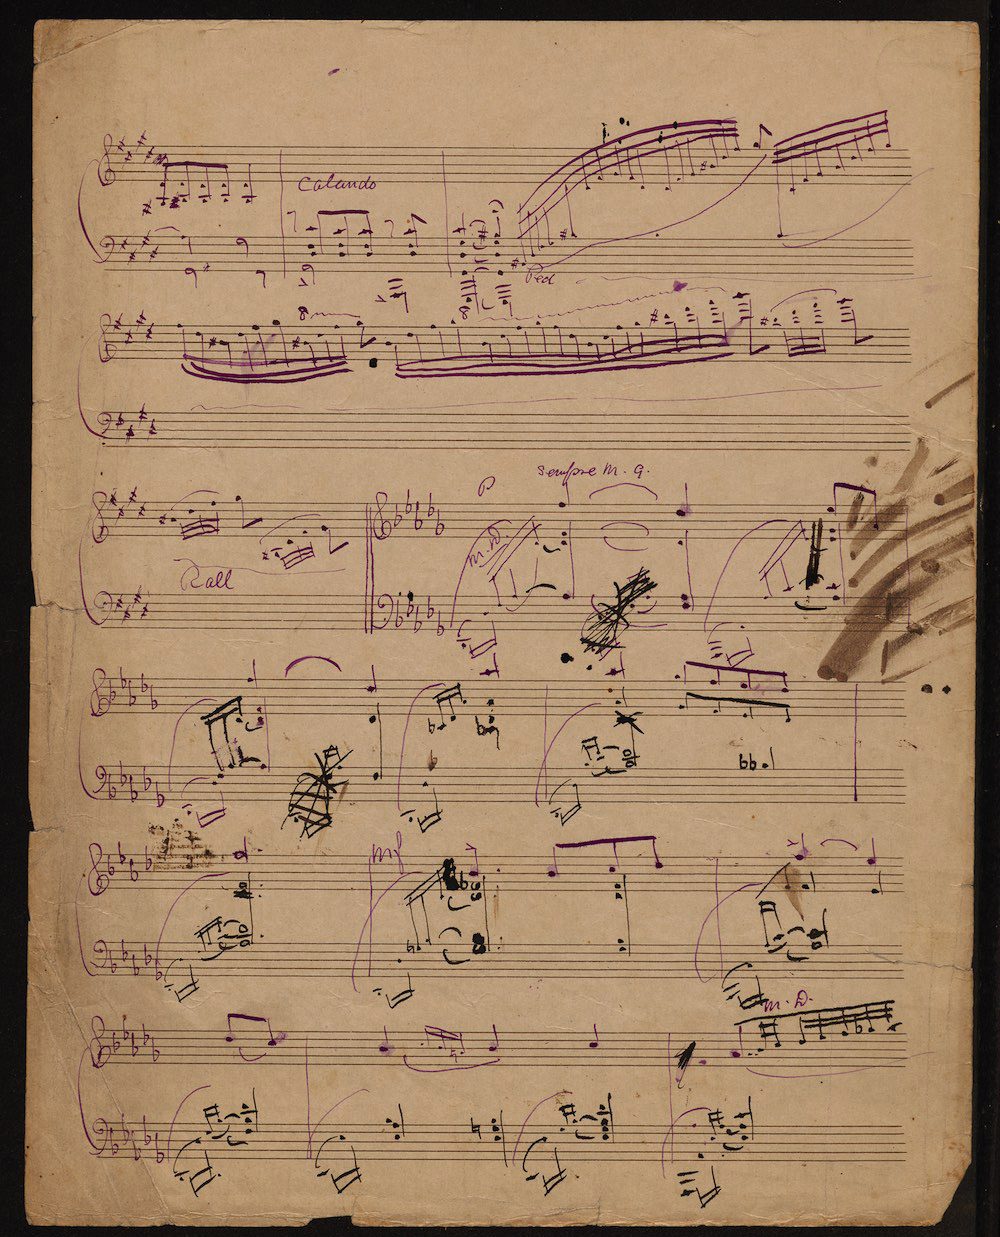 Calando
Ped
8
8
P sempre M. G.
M. D.
Rall
mf
M. D.